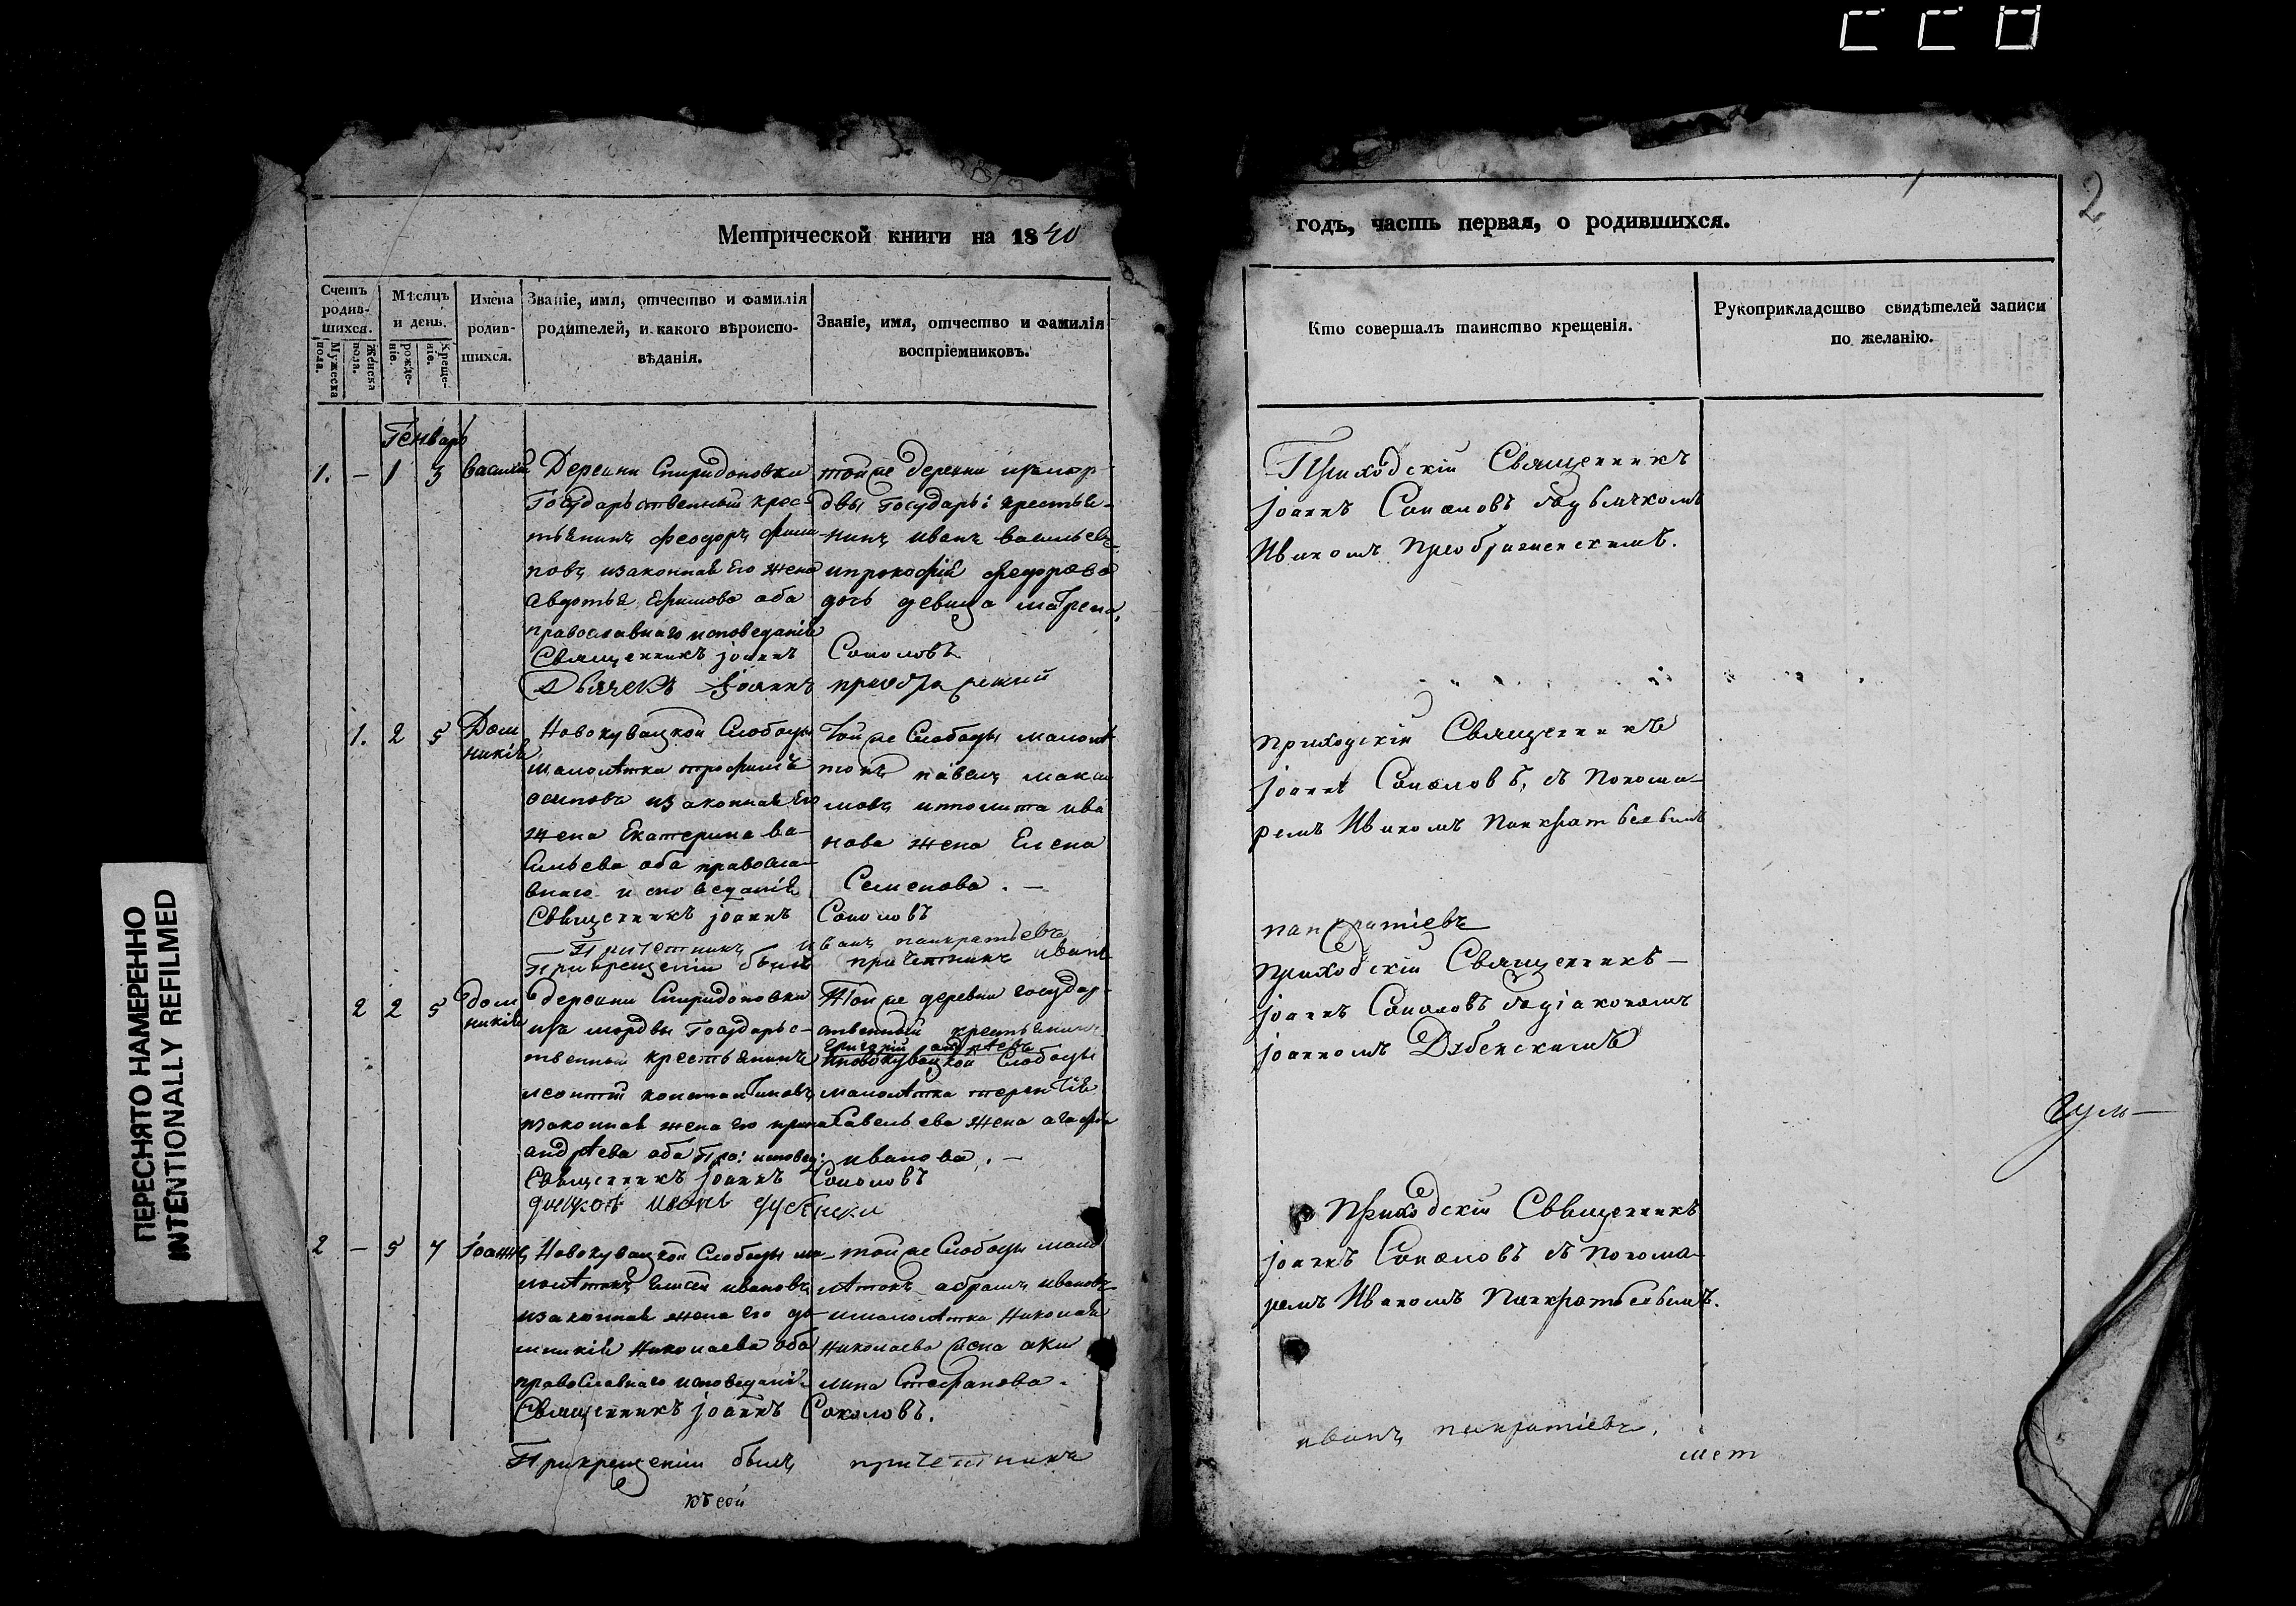 2
Метрической книги на 1840
годъ, часть первая, о родившихся.
Счетъ родив-шихся.
Мужеска пола.
Женска пола.
Мѣсяцъ и день.
рожде-нiе.
Креще-нiе.
Имена родив-шихся.
Званiе, имя, отчество и фамилiя родителей, и какого вѣроиспо-вѣданiя.
Званiе, имя, отчество и фамилiя воспрiемниковъ.
Кто совершалъ таинство крещенiя.
Рукоприкладсшво свидѣтелей записи по желанiю.
Генварь
1. – 1 3 Василий
Деревни Спиридоновки
Государственный крес-
тьянинъ феодоръ
новъ изаконная Его жена
Авдотья Ефимова оба
православнаго исповеданiя
Священникъ Iоаннъ Соколовъ
Дьячекъ Iоаннъ
тойже деревни измор-
двы Государ: крестья-
нинъ иванъ васильевъ
ипрокофiй федорова
дочь девица матрена.
Приходскiй Священникъ
Iоаннъ Соколовъ дьячкомъ
Иваномъ Преображенскимъ.
1. 2 5 Дом
никiя
Новокувацкой Слободы
малолѣтка трофимъ
осиповъ изаконная Его
жена Екатерина ва-
сильева оба правосла-
внаго исповеданiя
Священникъ Iоаннъ Соколовъ
Причетникъ иванъ панкратьевъ
Той же Слободы малолѣ
токъ павелъ макси
мовъ ипполита ива
нова жена Елена
Семенова. –
Приходскiй Священникъ
Iоаннъ Соколовъ, съ Понома-
ремъ Иваномъ Панкратьевымъ
Прикрещенiи былъ причетникъ иванъ
панкратiевъ
2 2 5 дом
никiя
деревни Спиридоновки
изъ мордвы Государс-
твенный крестьянинъ
леонтiй константиновъ
изаконная жена его ирина
андрѣева оба Пра: исповед:
Священникъ Iоаннъ Соколовъ
Той же деревни государ-
ственный крестьянинъ
григорiй андрѣевъ
иновокувацкой Слободы
малолѣтка терентiя
Савельева жена агафiя
иванова. –
Приходскiй Священникъ –
Iоаннъ Соколовъ дiакономъ
Iоанномъ Дубенскимъ
2 – 5 7 Iоаннъ
Новокувацкой Слободы ма-
лолѣтокъ Елисей ивановъ
изаконная жена его до-
мникiя Николаева оба
православнаго исповеданiя
Священникъ Iоаннъ Соколовъ.
тойже Слободы мало
лѣтокъ абрамъ ивановъ
ималолѣтка Николая
Николаева жена аки
лина Стефанова.
Приходскiй Священникъ
Iоаннъ Соколовъ съ Понома-
ремъ Иваномъ Панкратьевымъ.
Прикрещенiи былъ причетникъ
иванъ панкратiевъ.
къ сей
мет
ПЕРЕСНЯТО НАМЕРЕННО
INTENTIONALLY REFILMED